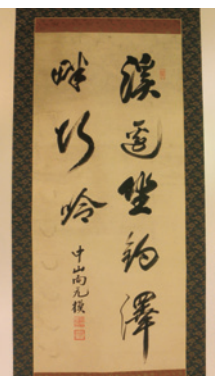 溪邊坐釣澤
畔行吟
中山向元模